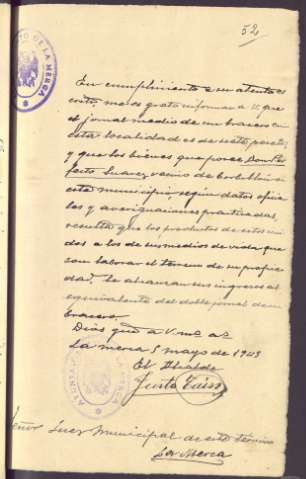 52
AYUNTAMIENTO DE LA MERCA
En cumplimiento a su atento es
crito, me es grato informar a V. que
el jornal medio de un bracero en
esta localidad es de siete pesetas,
y que los bienes que posee Don Per
fecto Suarez vecino de
este municipio, según datos oficia
les y averiguaciones practicadas,
resulta que los productos de estos uni
dos a los de sus medios de vida que
son labrar el terreno de su propie
dad, le alcanzan sus ingresos al
equivalente del doble jornal de un
bracero.
Dios gue a V. ms. as.
La Merca 5 mayo de 1943
El Alcalde
Justo
AYUNTAMIENTO DE LA MERCA
Señor Juez Municipal de este término
La Merca